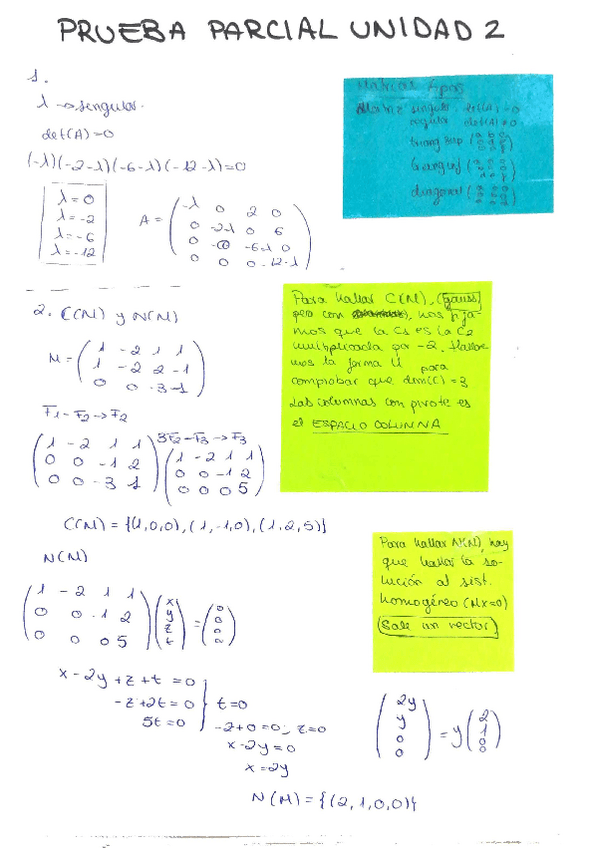 PRUEBA PARCIAL UNIDAD 2
1.
λ → singular.
det(A)=0
(-λ)(-2-λ)(-6-λ)(-12-λ)=0
λ=0
λ=-2
λ=-6
λ=-12
A =
-λ 0 2 0
0 -2-λ 0 6
0 -6-λ 0
0 0 0 -12-λ
Matriz singular det(A)=0
regular det(A)≠0
triang sup
triang inf
diagonal
2. C(M) y N(M)
M =
1 -2 1 1
1 -2 2 -1
0 0 -3 -1
F1 - F2 → F2
1 -2 1 1
0 0 -1 2
0 0 -3 1
3F2 - F3 → F3
1 -2 1 1
0 0 -1 2
0 0 0 5
Para hallar C(M), (gauss)
pero con, nos fija-
mos que la C1 es la C2
multiplicada por -2. Halla-
mos la forma U para
comprobar que dim(C)=3
Las columnas con pivote es
el ESPACIO COLUMNA
C(M) = {(1,0,0), (1,-1,0), (1,2,5)}
N(M)
1 -2 1 1
0 0 -1 2
0 0 0 5
x
y
z
t
=
0
0
0
Para hallar N(M), hay
que hallar la so-
lución al sist.
homogéneo (Mx=0)
(Sale un vector)
x - 2y + z + t = 0
-z + 2t = 0
5t = 0
t=0
-z+0=0; z=0
x-2y=0
x=2y
2y
y
0
0
= y
2
1
0
0
N(M) = {(2,1,0,0)}